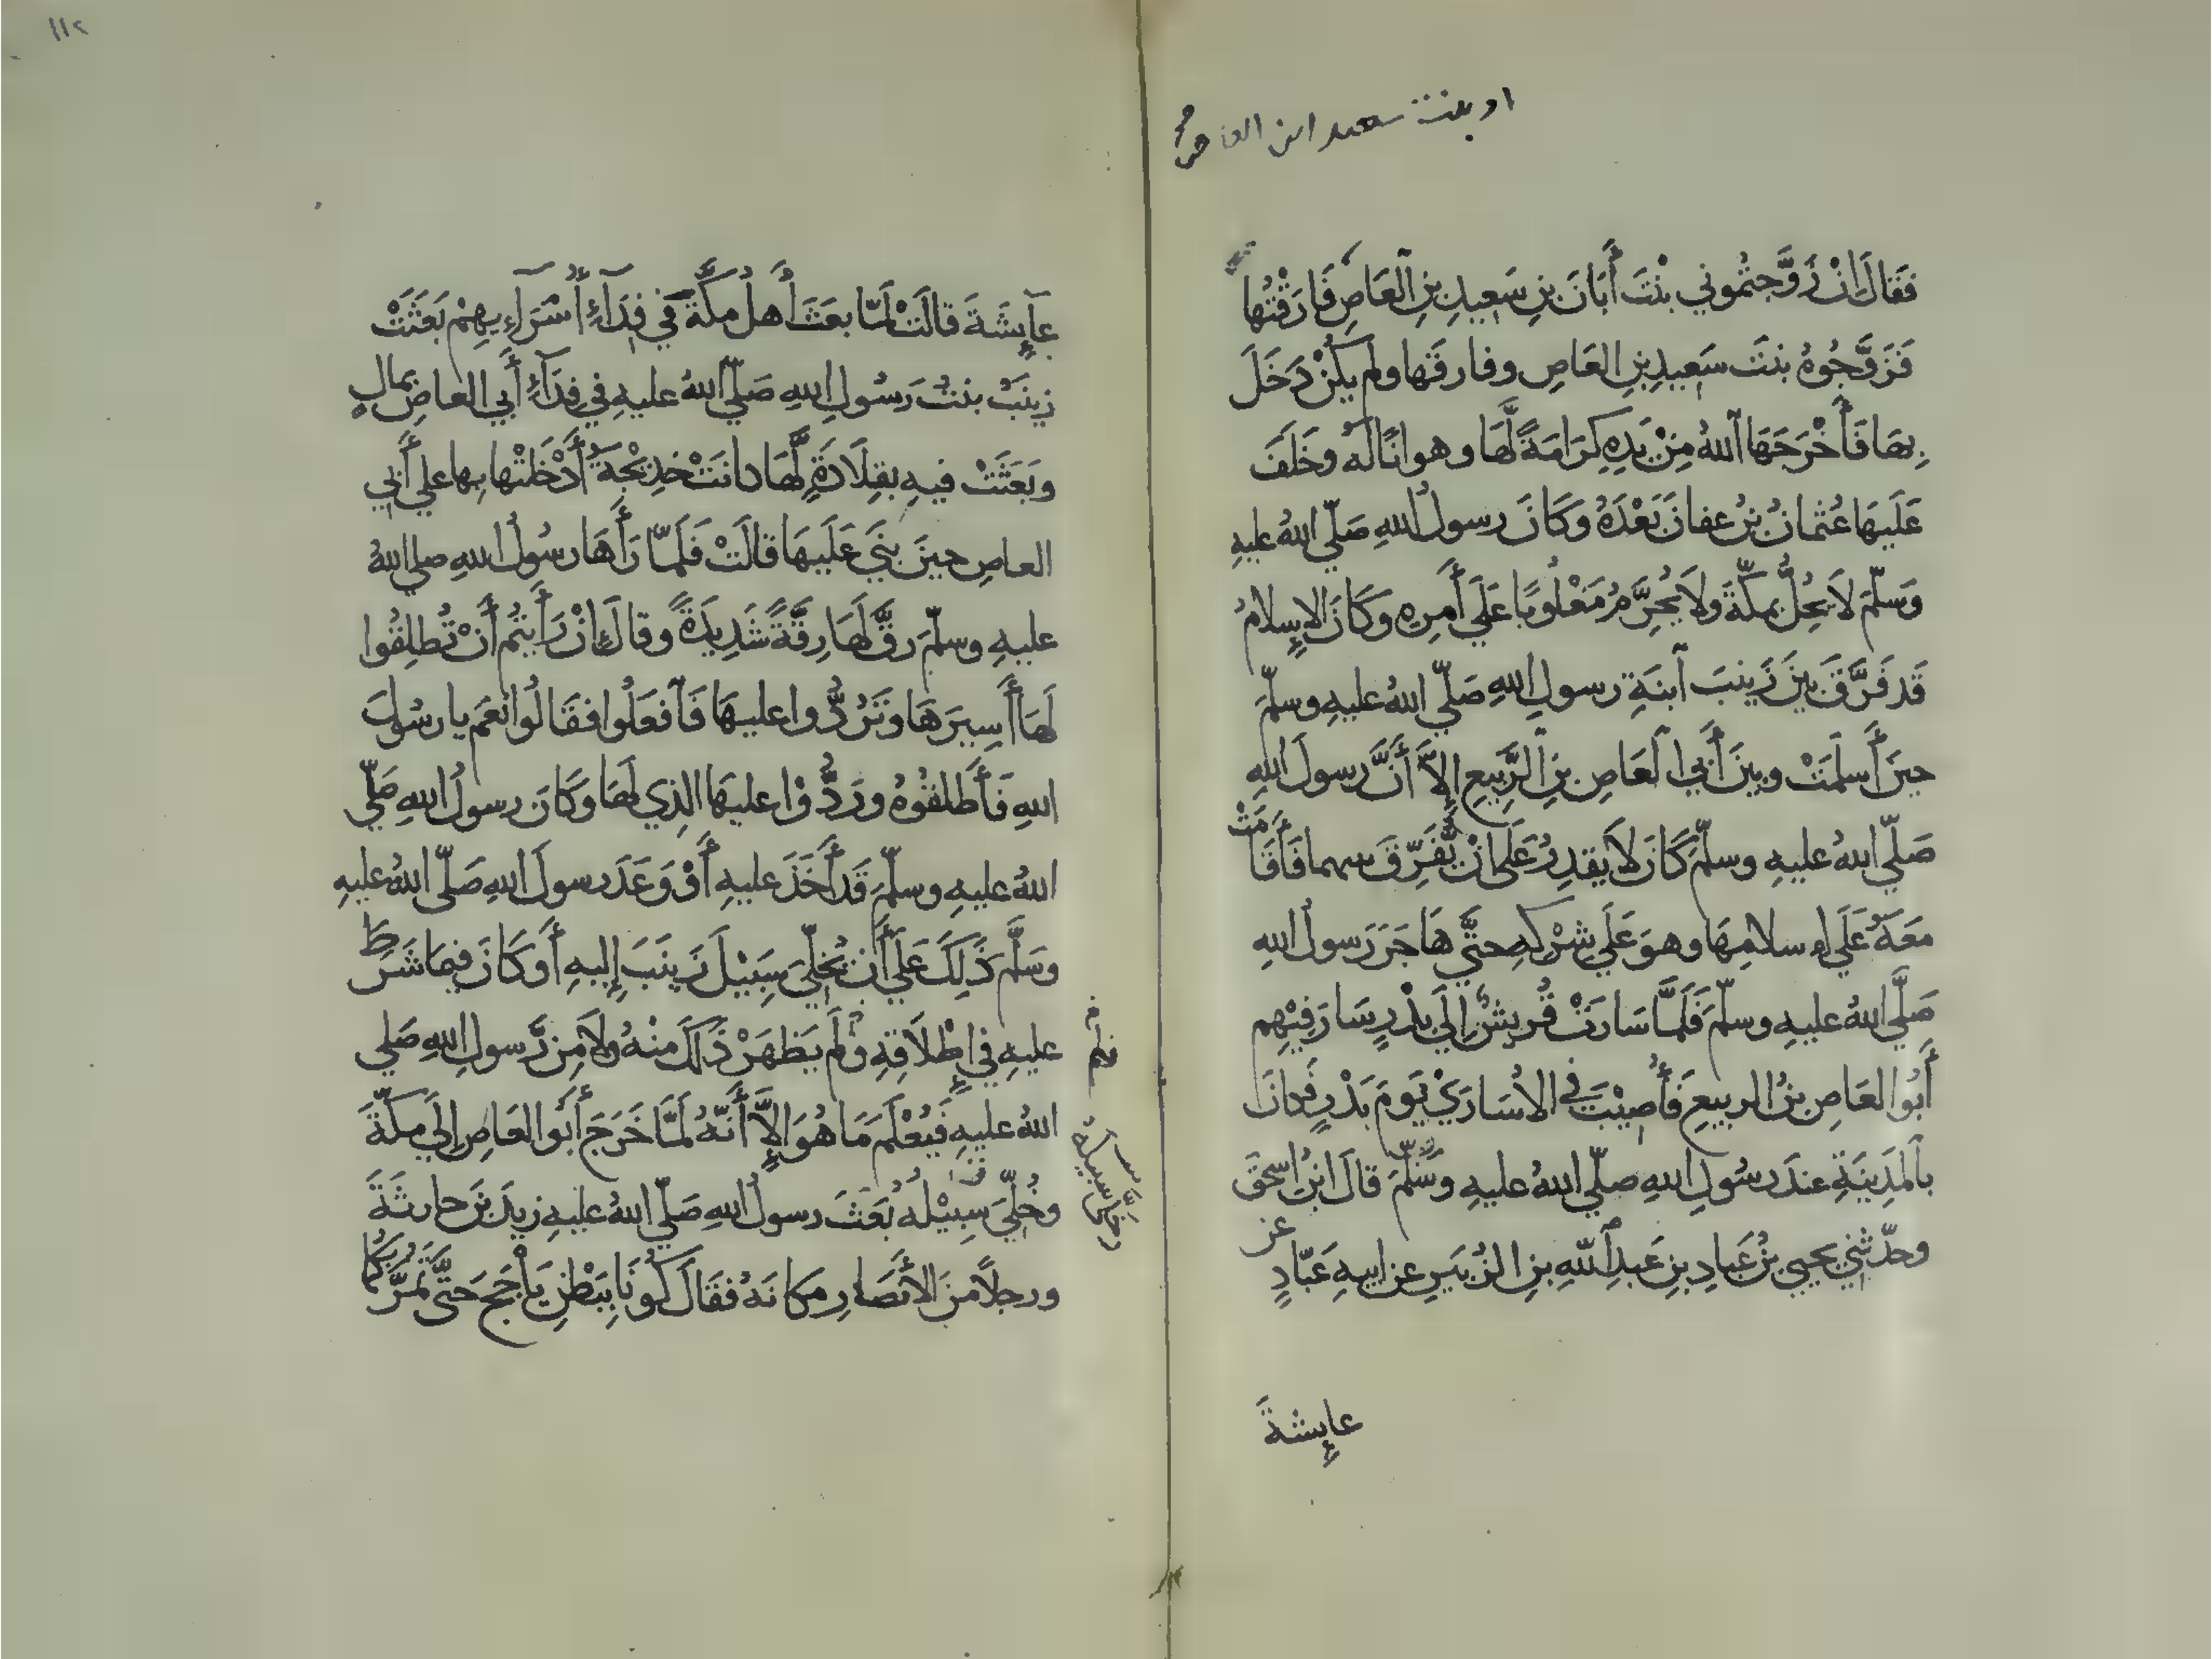 او بنت سعيد ابن العاص صح
فَقَالَ إِنْ زَوَّجتُموني بنْتَ أَبَانَ بنِ سَعِيدِ بنِ ٱلعَاصِ فَارَقْتُها
فَزَوَّجُوهُ بنتَ سَعيدِ بنِ العَاصِ وفارقَها ولم يكُنْ دَخَلَ
بِهَا فَأَخْرَجَهَا ٱللهُ مِنْ يَدِهِ كَرَامَةً لَّهَا وهوانًا لَهُ وخَلَفَ
عَلَيهَا عُثمانُ بنُ عفانَ بَعْدَهُ وَكَانَ رسولُ اللهِ صَلّي اللهُ عليهِ
وَسَلّمَ لاَ يَحِلُّ بمكّةَ ولاَ يُحَرِّمُ مَغْلُوبًا عَلَي أَمرِهِ وَكَانَ الإِسلامُ
قَد فَرَّقَ بينَ زَينبَ ٱبنَةِ رسولِ اللهِ صَلّي اللهُ عليهِ وسلّمَ
حينَ أَسلمَتْ وبينَ أَبي ٱلعَاصِ بنِ ٱلرَّبِيعِ إِلاَّ أَنَّ رسولَ اللهِ
صَلّي اللهُ عليهِ وسلّمَ كَانَ لاَ يقدِرُ عَلَي انْ يُّفَرِّقَ بينهما فَأَقَامَتْ
مَعَهُ عَلَي إِسلامِهَا وهوَ عَلَي شِرْكِهِ حتَّي هَاجَرَ رَسولُ اللهِ
صَلَّي اللهُ عليهِ وسلّمَ فَلَمَّا سَارَتْ قُريشٌ إِلَي بَدْرٍ سَارَ فِيْهِم
أَبُوا العَاصِ بنُ الربيعِ فَأُصِيْبَ في الاُسَارَيْ يَومَ بَدْرٍ فَكانَ
بٱلمَدِينَةِ عندَ رسُولِ اللهِ صلّي اللهُ عليهِ وسَلّمَ قالَ ابنُ اسحقَ
وحدّثني يحيي بنُ عَبادِ بنِ عَبدِ ٱللّهِ بنِ الزُبَيرِ عن ابيهِ عَبّادٍ عن
عايِشةَ
١١٢
عآيِشَةَ قالَتْ لَمّا بعَثَ أَهلُ مكَّةَ في فِدَآءِ أُسَرَآءِيهِمْ بَعَثَتْ
زينَبُ بنتُ رَسُولِ اللهِ صَلّي اللهُ عليهِ في فِدَآءِ أَبي العاصِ بمالٍ
وبَعَثَتْ فيهِ بقِلَادَةٍ لَّهَا كانتْ خدِيْجَةُ أَدْخَلتْها بها علي أَبي
العاصِ حينَ بَنَي عَلَيهَا قالَتْ فَلَمّا رَأَهَا رسُولُ اللهِ صلي اللهُ
عليهِ وسلّمَ رقَّ لَهَا رِقَّةً شَدِيدَةً وقالَ إِنْ رَأَيتُم أَنْ تُطلِقُوا
لَهَا أَسِيرَهَا وتَرُدُّوا عليهَا فَٱفعَلُوا فقَالُوا نعَم يا رسُولَ
اللهِ فَأَطلقُوهُ ورَدُّوْا عليهَا الذِي لَهَا وَكَانَ رسولُ اللهِ صَلّي
اللهُ عليهِ وسلّمَ قَد أَخَذَ عليهِ أَوْ وَعَدَ رسولَ اللهِ صَلّي اللهُ عليهِ
وسَلَّمَ ذَٰلِكَ عَلَي أَن يُخَلِّيَ سَبِيْلَ زَينَبَ إِليهِ أَو كَانَ فيمَا شَرَطَ
عليهِ في إِطْلَاقِهِ وَلَم يَظهَرْ ذَٰلكَ منْهُ ولاَ مِن رَّسولِ اللهِ صَلي
اللهُ عليهِ فَيُعْلَمَ مَا هُوَ إِلاَّ أَنَّهُ لَمَّا خَرَجَ أَبُو العَاصِ إِلَي مكّةَ
وخُلِّيَ سَبِيْلُهُ بَعَثَ رسولُ اللهِ صَلّي اللهُ عليهِ زيدَ بنَ حارثَةَ
ورجلاً منَ الأَنصَارِ مكانَهُ فقَالَ كُونَا بِبَطْنِ يَأْجَجَ حَتَّي تمُرَّ بكُما